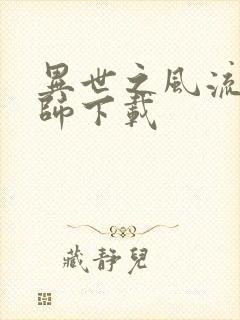 異世之風流
師下載
藏靜兒